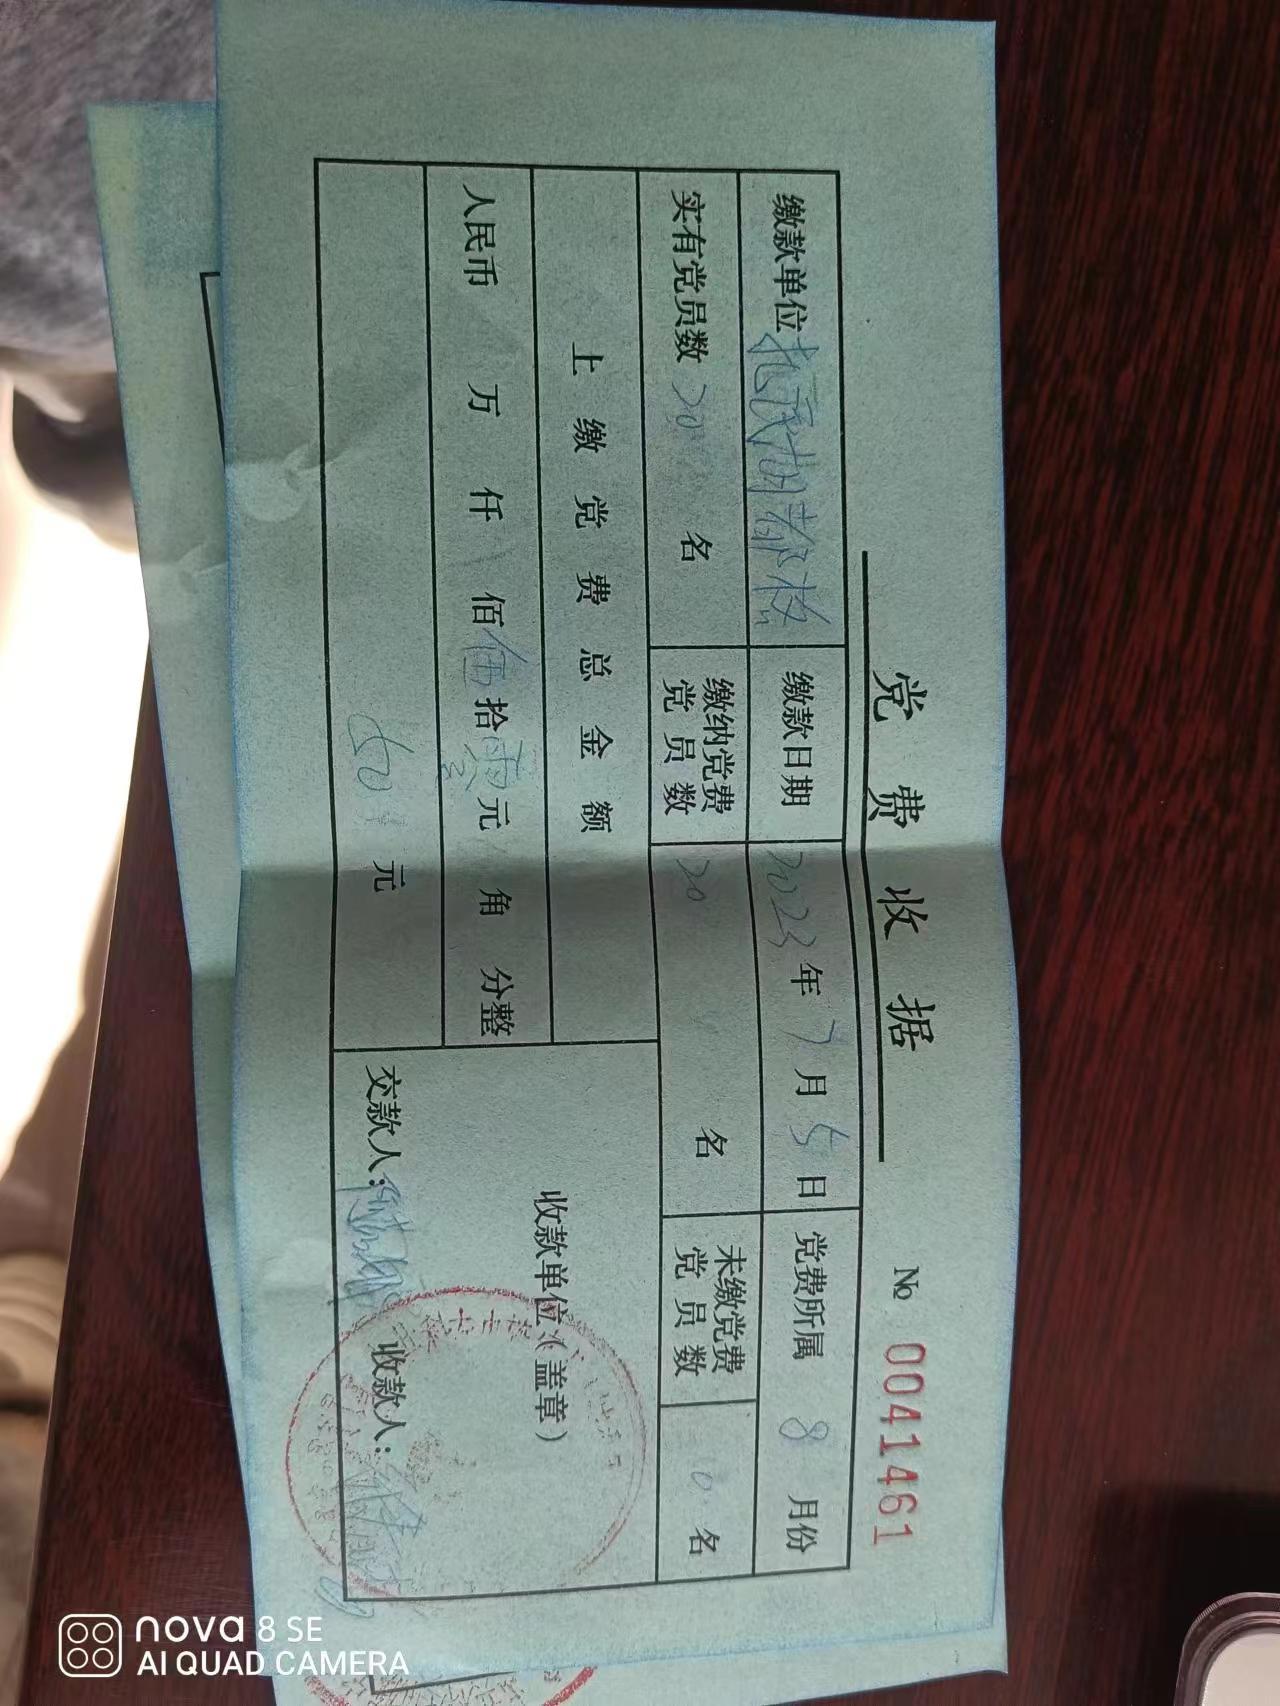 党费收据
№ 0041461
缴款单位 缴款日期 2023年7月5日 党费所属 8月份
实有党员数 20 名 缴纳党费党员数 20 名 未缴党费党员数 0 名
上缴党费总金额
人民币 万 仟 佰 伍拾零元 角 分整
50 元
收款单位（盖章）
交款人： 收款人：
nova 8 SE
AI QUAD CAMERA